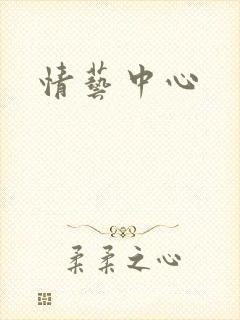 情藝中心
柔柔之心